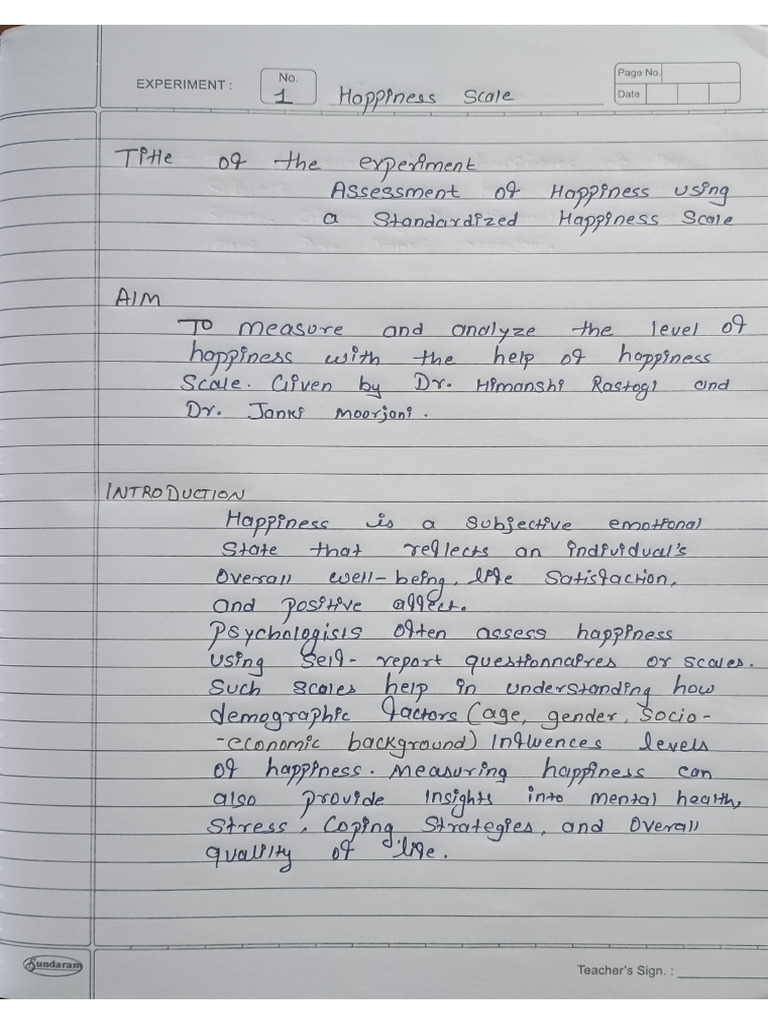 EXPERIMENT : No. 1 Happiness Scale Page No. Date
Title of the experiment
Assessment of Happiness using
a Standardized Happiness Scale
AIM
To measure and analyze the level of
happiness with the help of happiness
Scale. Given by Dr. Himanshi Rastogi and
Dr. Janki Moorjani.
INTRODUCTION
Happiness is a subjective emotional
State that reflects an individual's
Overall well-being, life Satisfaction,
and positive affect.
Psychologists often assess happiness
using self-report questionnaires or scales.
Such scales help in understanding how
demographic factors (age, gender, Socio-
-economic background) Influences levels
of happiness. Measuring happiness can
also provide insights into mental health,
Stress, Coping Strategies, and Overall
quality of life.
Sundaram
Teacher's Sign. :